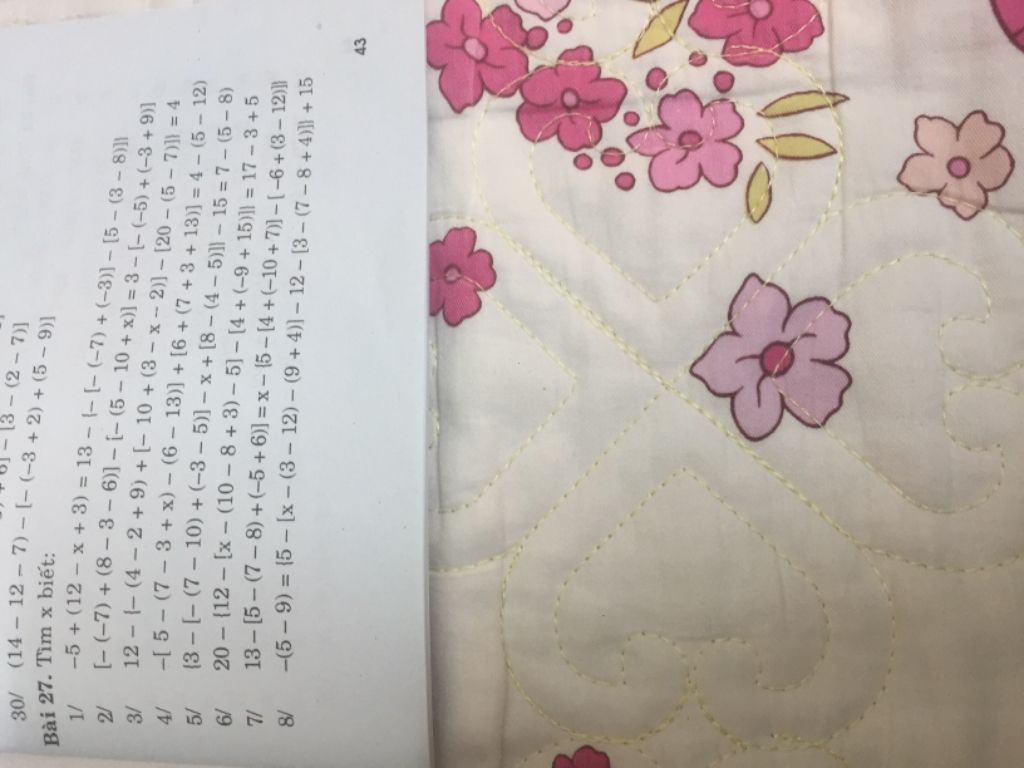 + 6] – [3 – (2 – 7)]
30/ (14 – 12 – 7) – [– (–3 + 2) + (5 – 9)]
Bài 27. Tìm x biết:
1/ –5 + (12 – x + 3) = 13 – {– [– (–7) + (–3)] – [5 – (3 – 8)]}
2/ [– (–7) + (8 – 3 – 6)] – [– (5 – 10 + x)] = 3 – [– (–5) + (–3 + 9)]
3/ 12 – {– (4 – 2 + 9) + [– 10 + (3 – x – 2)] – [20 – (5 – 7)]} = 4
4/ –[ 5 – (7 – 3 + x) – (6 – 13)] + [6 + (7 + 3 + 13)] = 4 – (5 – 12)
5/ {3 – [– (7 – 10) + (–3 – 5)] – x + [8 – (4 – 5)]} – 15 = 7 – (5 – 8)
6/ 20 – {12 – [x – (10 – 8 + 3) – 5] – [4 + (–9 + 15)]} = 17 – 3 + 5
7/ 13 – [5 – (7 – 8) + (–5 + 6)] = x – {5 – [4 + (–10 + 7)] – [–6 + (3 – 12)]}
8/ –(5 – 9) = {5 – [x – (3 – 12) – (9 + 4)] – 12 – [3 – (7 – 8 + 4)]} + 15
43